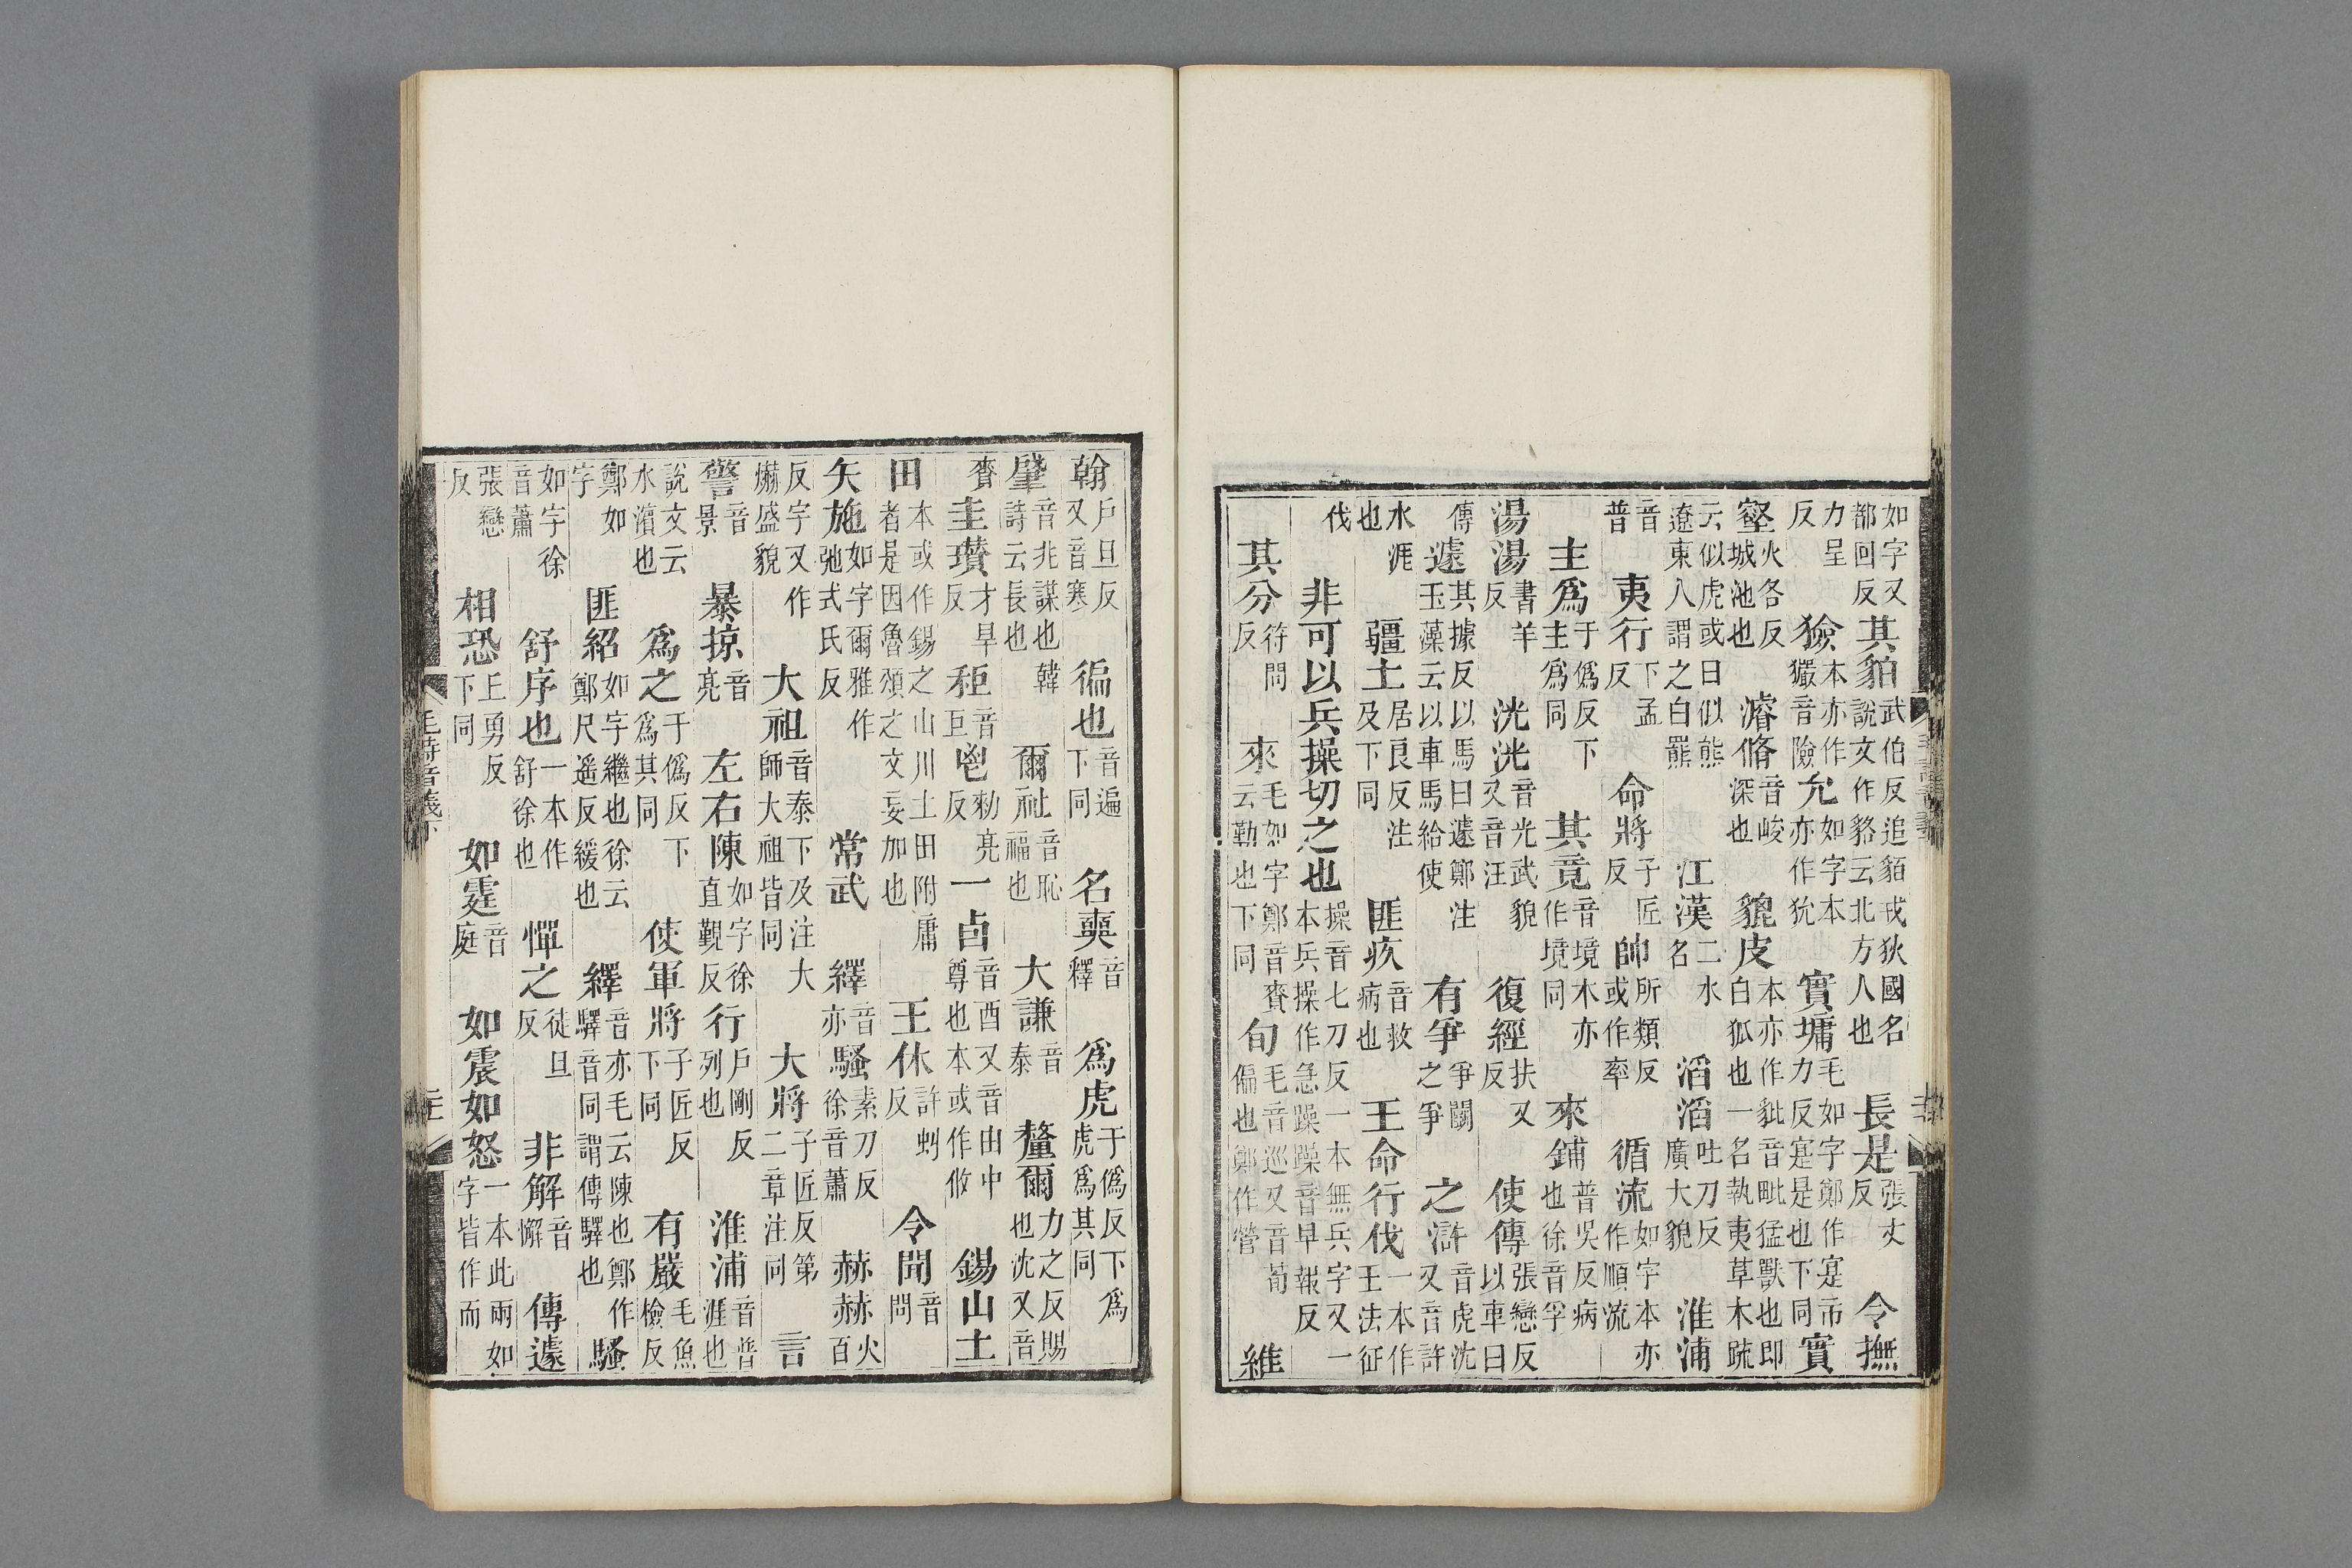 如字又都回反其貊武伯反追貊戎狄國名說文作貉云北方人也長是張丈反令撫
力呈反獫本亦作玁音險允如字本亦作狁實墉毛如字鄭作寔市力反寔是也下同實
壑火各反城池也濬脩音峻深也貔皮本亦作豼音毗猛獸也即白狐也一名執夷草木疏
云似虎或曰似熊遼東人謂之白羆江漢二水名滔滔吐刀反廣大貌淮浦
音普夷行下孟反命將子匠反帥所類反或作率循流如字本亦作順流
主爲于僞反下主爲同其竟音境本亦作境同來鋪普吳反病也徐音孚
湯湯書羊反洸洸音光武貌又音汪復經扶又反使傳張戀反以車曰
傳遽其據反以馬曰遽鄭注玉藻云以車馬給使有爭爭鬬之爭之滸音虎沈又音許
水涯也疆土居良反注及下同匪疚音救病也王命行伐一本作王法征
伐非可以兵操切之也操音七刀反一本無兵字又一本兵操作急躁躁音早報反
其分符問反來毛如字鄭音賚云勤也下同旬毛音巡又音荀徧也鄭作營維
翰戶旦反又音寒徧也音遍下同名奭音釋爲虎于僞反下爲虎爲其同
肇音兆謀也韓詩云長也爾祉音恥福也大謙音泰釐爾力之反賜也沈又音
賚圭瓚才旱反秬音巨鬯勑亮反一卣音酉又音由中尊也本或作攸錫山土
田本或作錫之山川土田附庸者是因魯頌之文妄加也王休許虯反令聞音問
矢施如字爾雅作弛式氏反常武繹音亦騷素刀反徐音蕭赫赫火百
反字又作爀盛貌大祖音泰下及注大師大祖皆同大將子匠反第二章注同言
警音景暴掠音亮左右陳如字徐直覲反行戶剛反列也淮浦音普涯也
說文云水濵也爲之于僞反下爲其同使軍將子匠反下同有嚴毛魚檢反
鄭如字匪紹如字繼也徐云鄭尺遥反緩也繹音亦毛云陳也鄭作驛音同謂傳驛也騷
如字徐音蕭舒序也一本作舒徐也憚之徒旦反非解音懈傳遽
張戀反相恐丘勇反下同如霆音庭如震如怒一本此兩如字皆作而
毛詩音義下